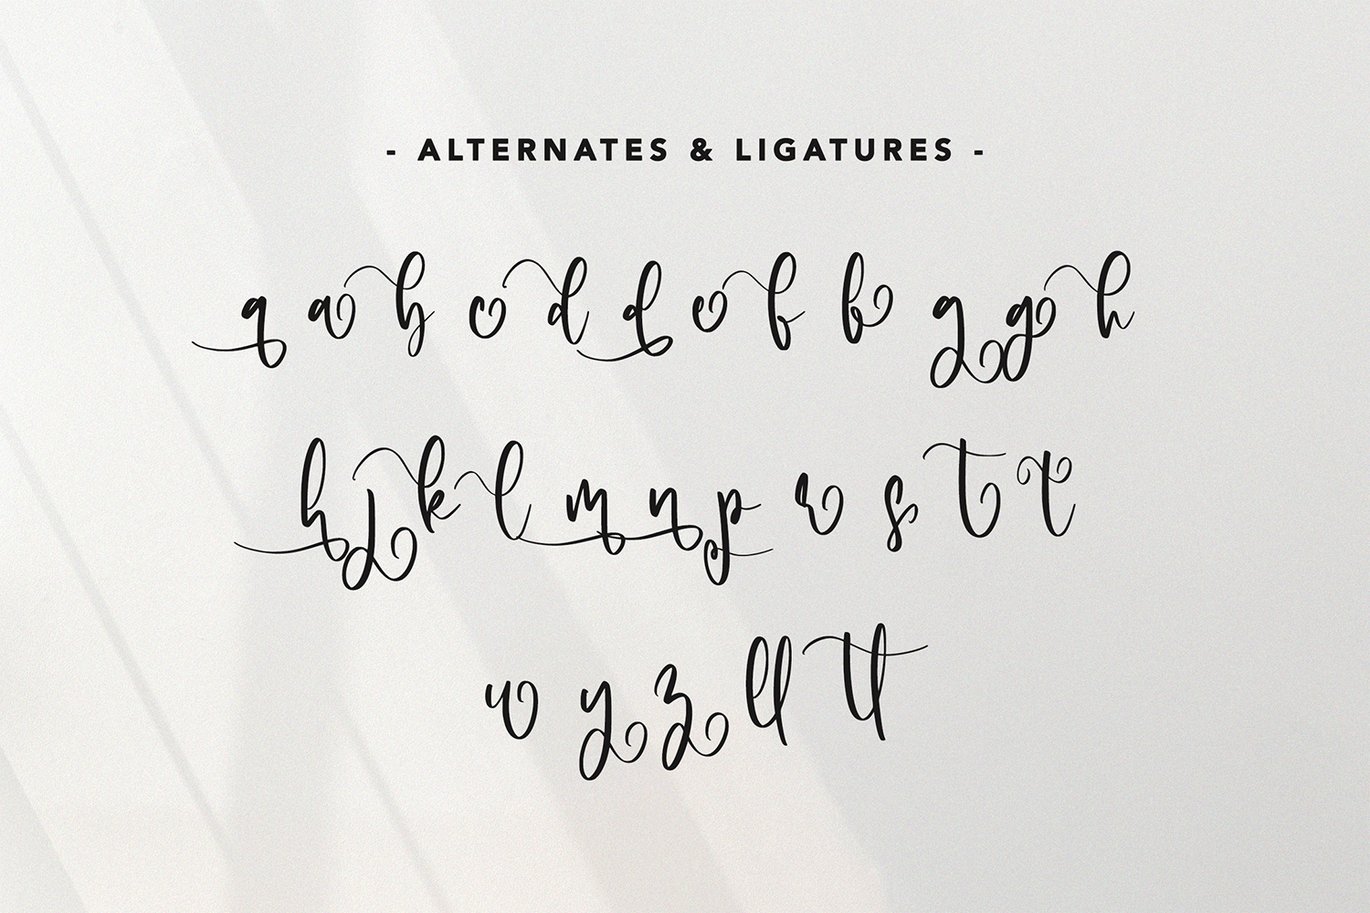 - ALTERNATES & LIGATURES -
a a b c d d e f b g g h
h j k l m n p r s t t
u y z ll tt